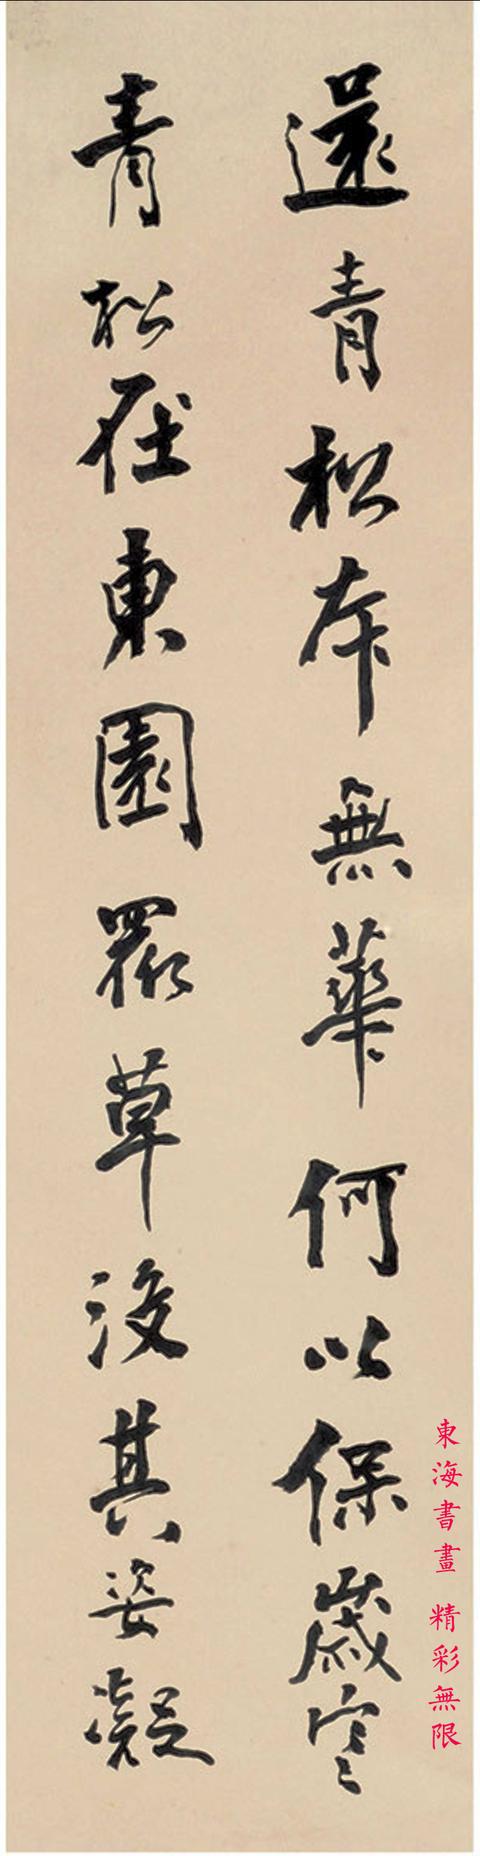 還青松本無華何以保歲寒
青松在東園眾草沒其姿凝
東海書畫 精彩無限